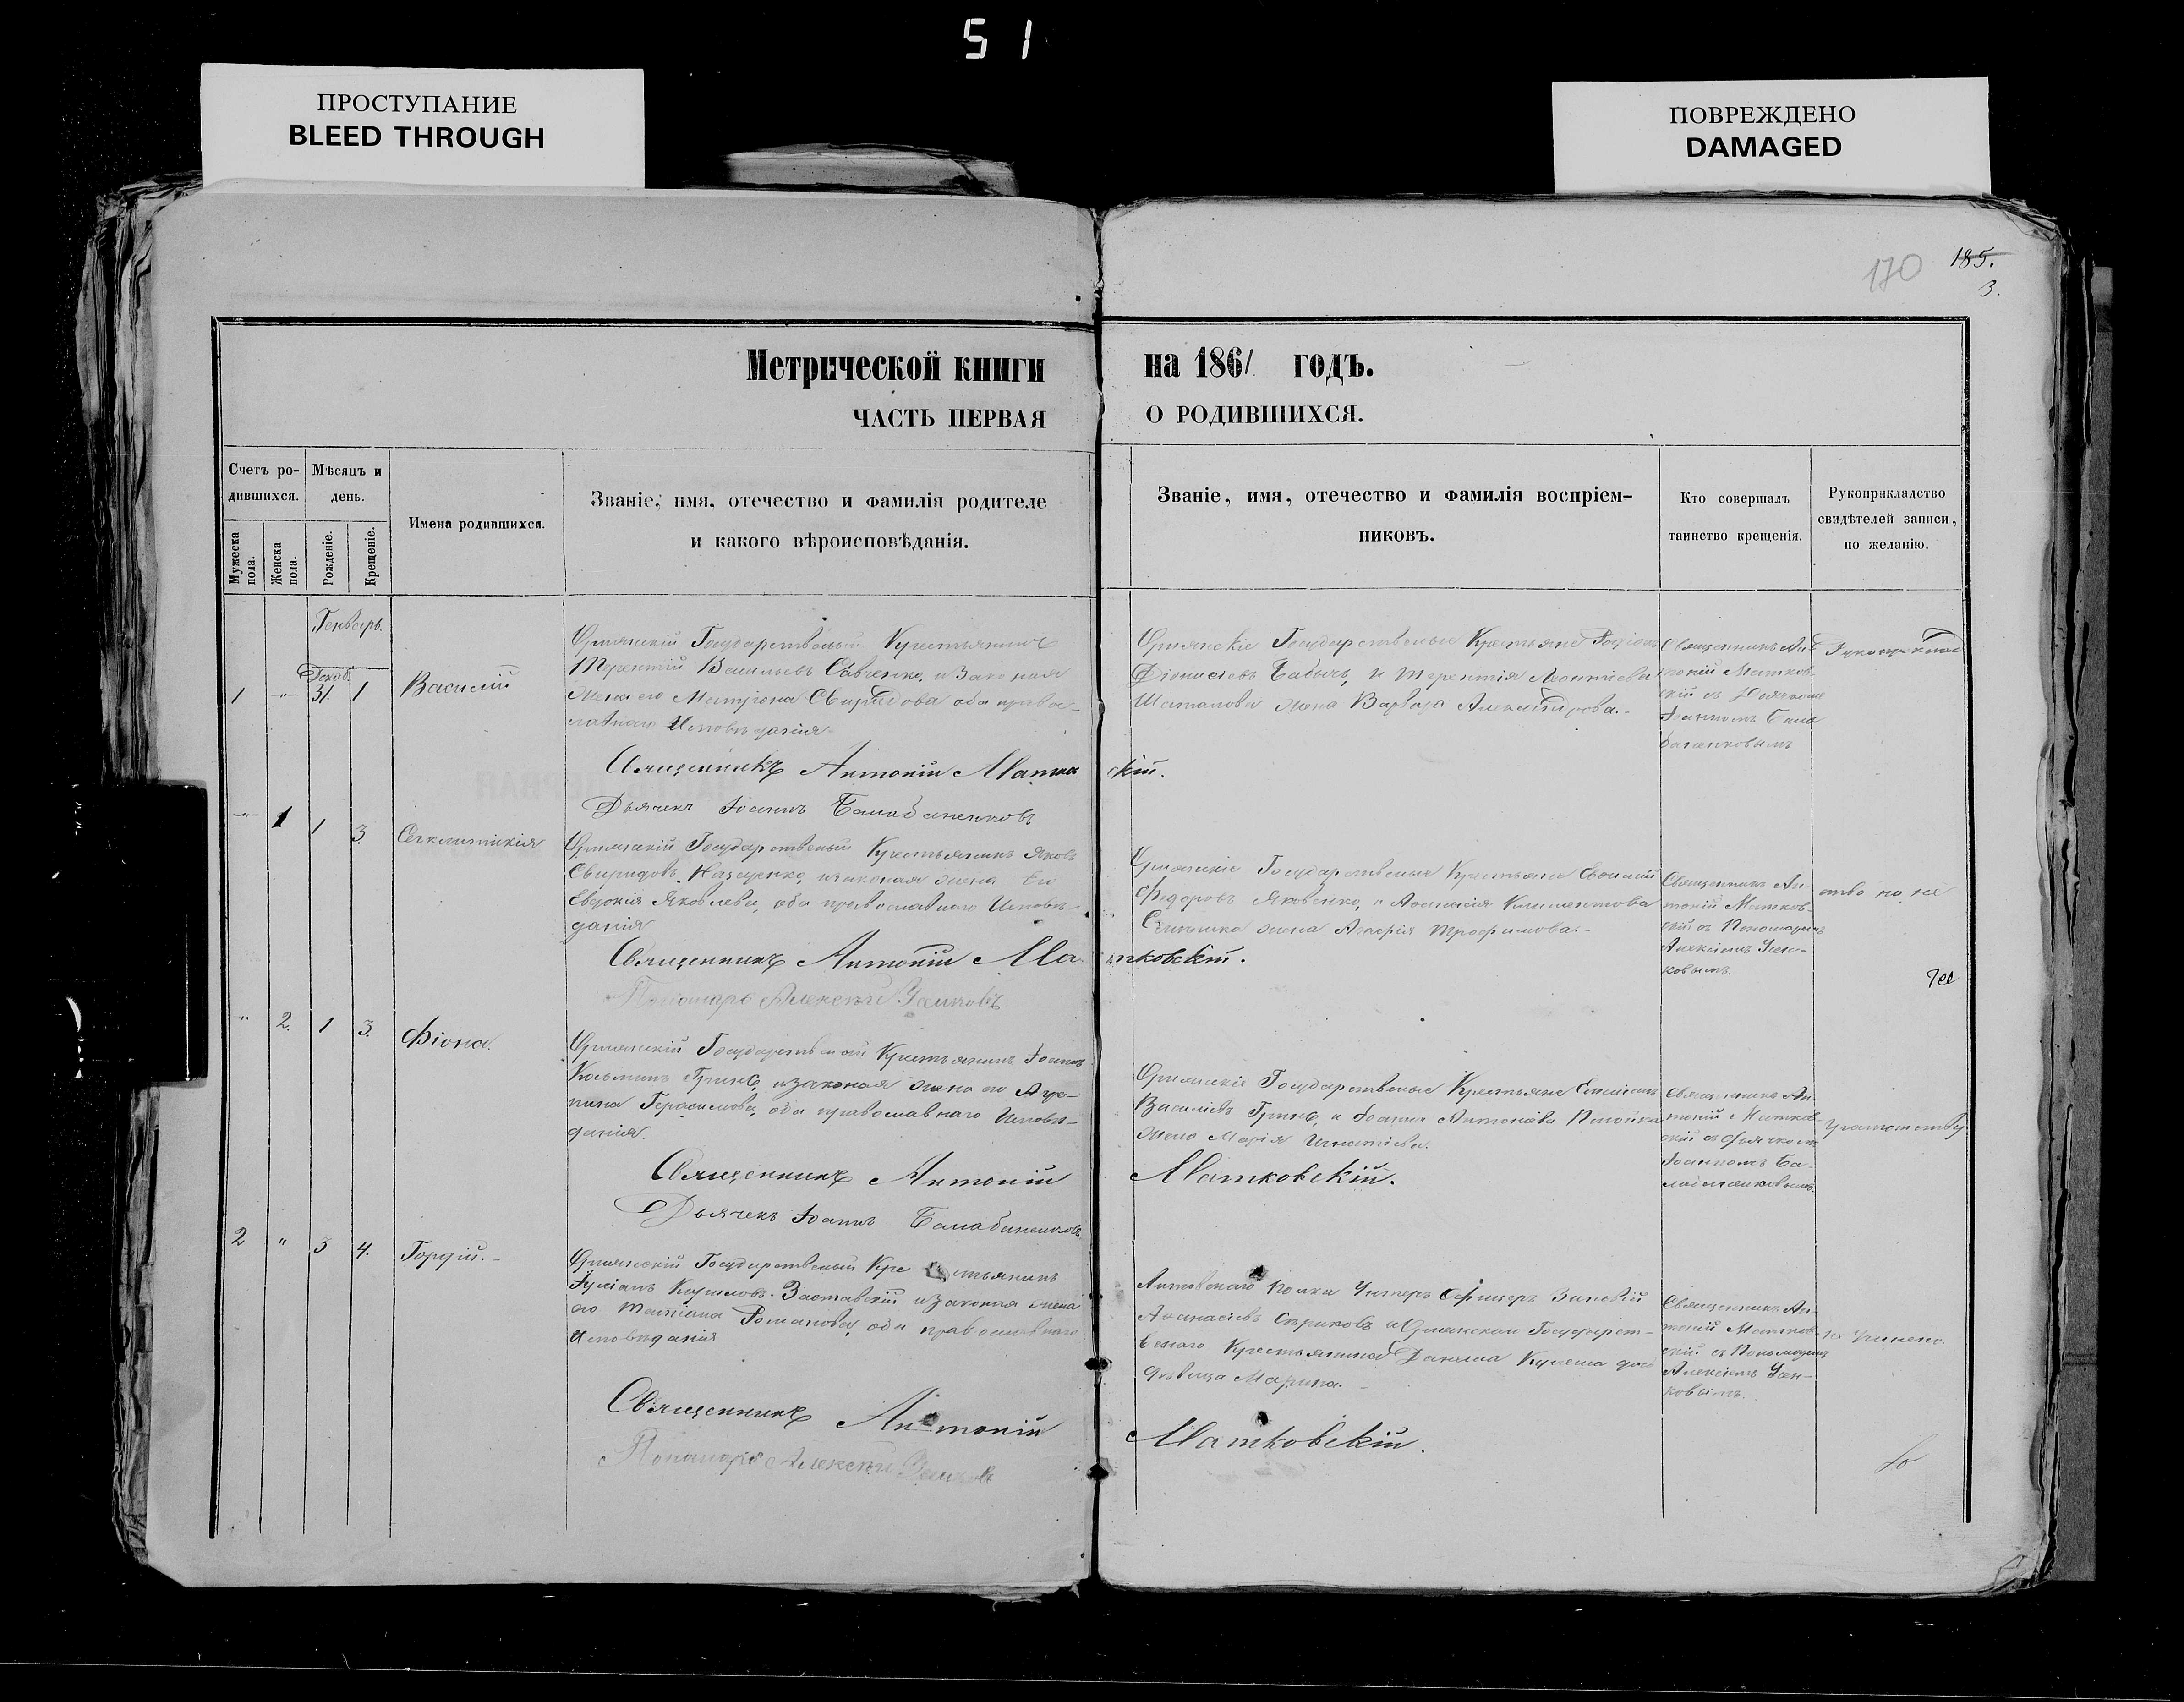 51
ПРОСТУПАНИЕ
BLEED THROUGH
ПОВРЕЖДЕНО
DAMAGED
170
185.
3.
Метрической книги на 1861 годъ.
ЧАСТЬ ПЕРВАЯ О РОДИВШИХСЯ.
Счетъ ро-
дившихся.
Мужеска пола.
Женска пола.
Мѣсяцъ и
день.
Рожденіе.
Крещеніе.
Имена родившихся.
Званіе, имя, отечество и фамилія родителе
и какого вѣроисповѣданія.
Званіе, имя, отечество и фамилія воспріем-
никовъ.
Кто совершалъ
таинство крещенія.
Рукоприкладство
свидѣтелей записи,
по желанію.
Генварь.
Декаб.
1 -"- 31. 1 Василій
Государственый Крестьянинъ
Терентій Васильевъ Савченко, и законая
жена его Матрона Свиридова оба право-
славнаго Исповѣданія
Священникъ Антоній Матков
скій.
Дьячекъ Іоаннъ Балабаненковъ
Государственые Крестьяне Родіонъ
Діонисіевъ Бабичъ, и Терентія Леонтіева
Шаталова жена Варвара Александрова.-
Священникъ Ан-
тоній Матков-
скій съ Дьячкомъ
Іоанномъ Бала
баненковымъ
Рукоприклад
-"- 1 1 3. Сегклитикія
Государственый Крестьянинъ Яковъ
Свиридовъ Назаренко, изаконая жена Его
Евдокія Яковлева, оба православнаго Исповѣ-
данія
Священникъ Антоній Ма
тковскій.
Пономарь Алексѣй
Государственые Крестьяне
Федоровъ Яковенко, и Аѳанасія Климентова
жена Агафія Трофимова.-
Священникъ Ан-
тоній Матков-
скій съ Пономаремъ
Алексіемъ
ковымъ.
ство по не
" 2. 1 3. Фіона.
Государственый Крестьянинъ Іоаннъ
Козьминъ Гринь, изаконая жена его Агри-
пина Герасимова, оба православнаго Исповѣ-
данія.
Священникъ Антоній
Матковскій.
Дьячекъ Іоаннъ Балабаненковъ
Государственые Крестьяне
Васильевъ Гринь, и Іоанна Антонова
жена Марія Игнатіева.
Священникъ Ан-
тоній Матков-
скій съ Дьячкомъ
Іоанномъ Ба-
лабаненковымъ.
грамотству
2 " 3 4. Гордій.-
Государственый Крестьянинъ
Іуліанъ Кириловъ Заставскій изаконая жена
его Татіана Романова, оба православнаго
Исповѣданія
Священникъ Антоній
Матковскій.
Пономарь Алексѣй
полка Унтеръ Офицеръ Зиновій
Аѳанасіевъ и Государст-
венаго Крестьянина Данила Кулеша дочь
дѣвица Марина.-
Священникъ Ан-
тоній Матков-
скій съ Пономаремъ
Алексіемъ
ковымъ.
учинено.